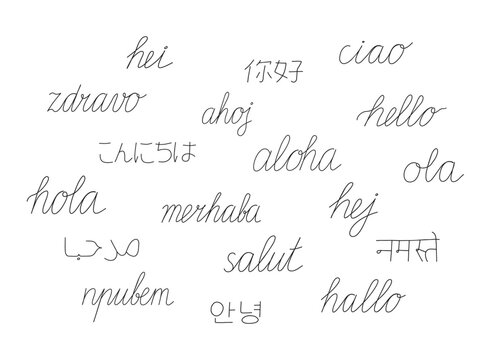 hei
ciao
你好
zdravo
ahoj
hello
こんにちは
aloha
ola
hola
merhaba
hej
مرحبا
salut
नमस्ते
привет
안녕
hallo